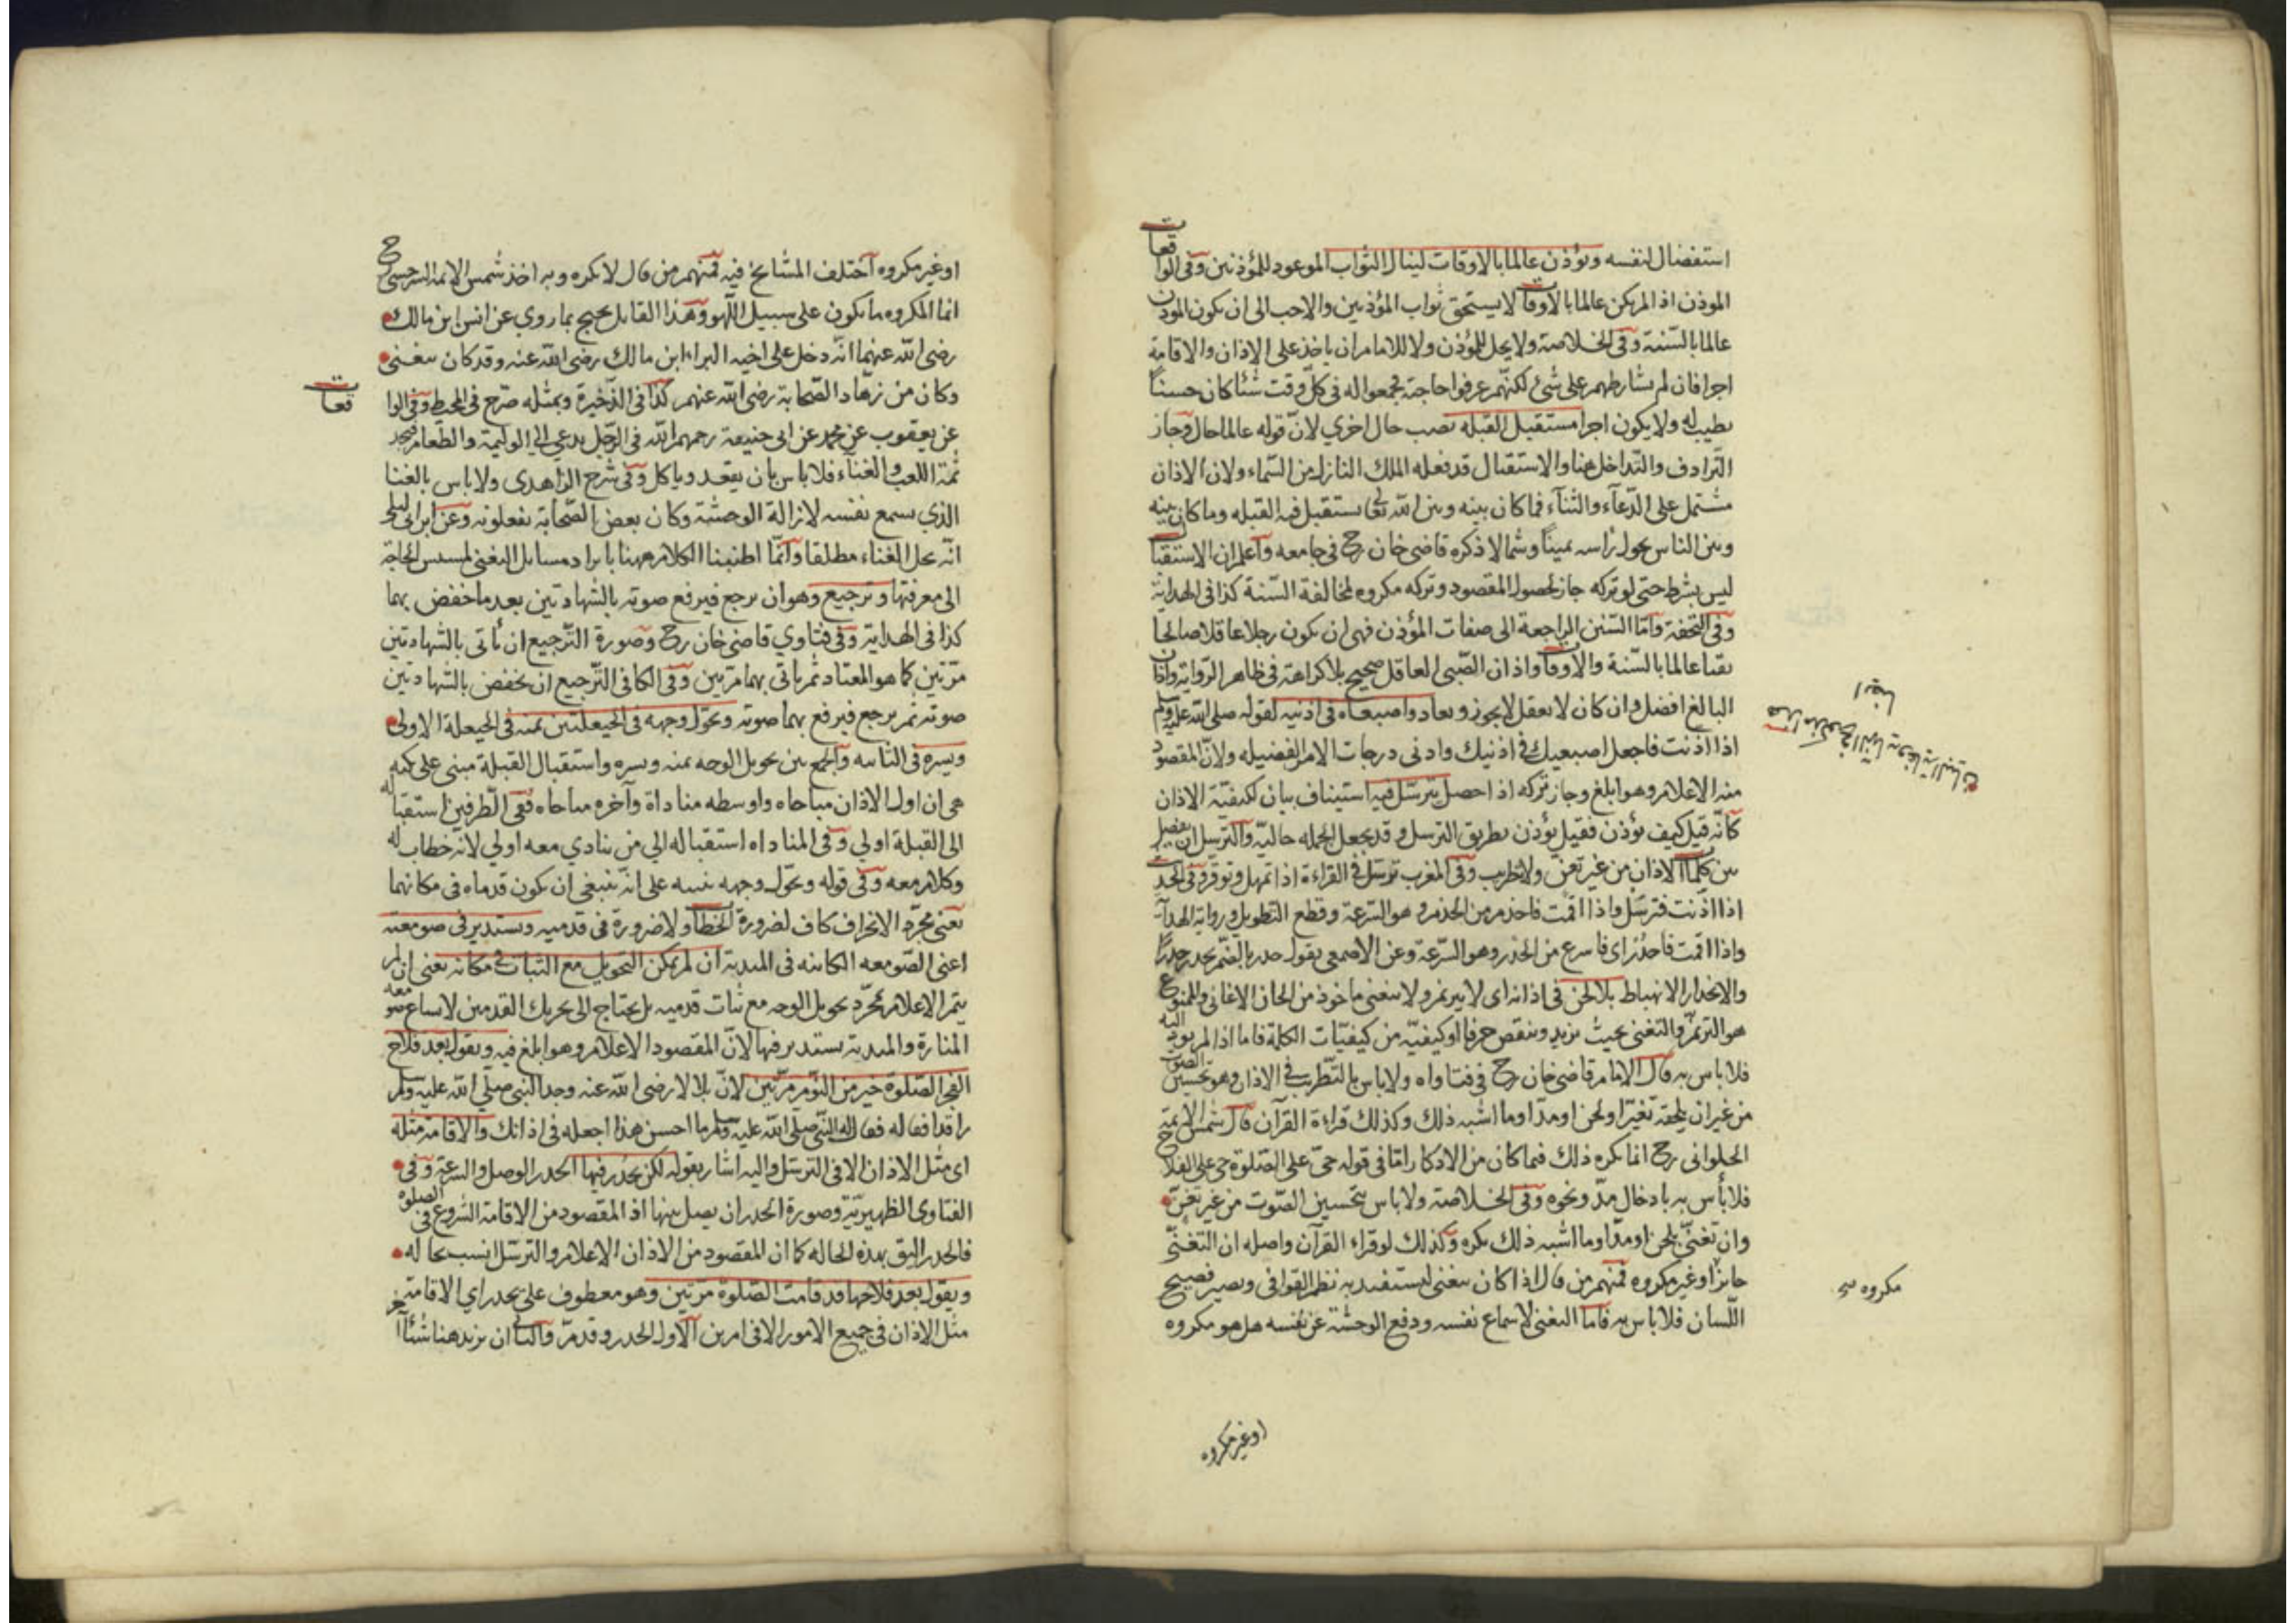 استفضال لنفسه ويؤذن عالما بالاوقات لينال الثواب الموعود للمؤذنين وفي الواقعات
الموذن اذا لم يكن عالما بالاوقات لا يستحق ثواب المؤذنين والاحب الى ان يكون الموذن
عالما بالسّنة وفى الخلاصة ولا يحل للمؤذن ولا للامام ان ياخذ على الاذان والاقامة
اجرا فان لم يشارطهم على شئ لكنهم عرفوا حاجته فجمعوا له في كلّ وقت شئا كان حسناً
يطيب له ولا يكون اجرا مستقبل القبله نصب حال اخري لانّ قوله عالما حال وجاز
الترادف والتّداخل هنا والاستقبال قد فعله الملك النازل من السّماء ولان الاذان
مشتمل على الدّعآء والثنآء فما كان بينه وبين الله تعالى يستقبل فيه القبله وما كان بينه
وبين الناس يحول رأسه يميناً وشمالا ذكره قاضى خان رح في جامعه واعلم ان الاستقبال
ليس بشرط حتى لو تركه جاز لحصول المقصود وتركه مكروه لمخالفة السّنة كذا فى الهداية
وفى التحفة وامّا السّنن الراجعة الى صفات المؤذن فهى ان يكون رجلا عاقلا صالحا
تقيا عالما بالسّنة والاوقات واذان الصّبى العاقل صحيح بلا كراهة فى ظاهر الرّواية واذان
البالغ افضل وان كان لا يعقل لا يجوز ويعاد واصبعاه فى اذنيه لقوله صلى الله عليه وسلم
اذا اذنت فاجعل اصبعيك في اذنيك وادنى درجات الامر الفضيله ولانّ المقصود
منه الاعلام وهو ابلغ وجاز تركه اذا حصل يترسّل فيه استيناف بيان لكيفيّة الاذان
كانّه قيل كيف يؤذن فقيل يؤذن بطريق الترسل وقد يجعل الجمله حاليّة والترسل ان يفصل
بين كلمات الاذان من غير تغن ولا تطرب وفى المغرب ترسّل في القراءة اذا تمهل وتوقر وفى الحديث
اذا اذّنت فترسّل واذا اقمت فاحذم من الحذم وهو السّرعة وقطع التطويل ورواية الهداية
واذا اقمت فاحدُر اى فاسرع من الحدر وهو السّرعة وعن الاصمعى يقول حدر بالضّم يحدر حدرًا
والانحدار الانهباط بلا لحن فى اذانه اى لا يترنم ولا يتغنى ماخوذ من الحان الاغانى والممنوع
هو الترنّم والتغنى بحيث يزيد وينقص حرفا او كيفيّة من كيفيّات الكلمة فاما اذا لم يود اليه
فلا باس به قال الامام قاضى خان رح في فتاواه ولا باس بالتّطريب في الاذان وهو تحسين الصوت
من غير ان يلحقه تغيّر او لحن او مدّ او ما اشبه ذلك وكذلك قراءة القرآن قال شمس الائمة
الحلوانى رح انما يكره ذلك فيما كان من الاذكار امّا فى قوله حىّ على الصّلوة حى على الفلاح
فلا بأس به بادخال مدّ ونحوه وفى الخلاصة ولا باس بتحسين الصّوت من غير تغنّ
وان تغنّى بلحن او مدّ او ما اشبه ذلك يكره وكذلك لو قراء القرآن واصله ان التغنّى
جائز او غير مكروه فمنهم من قال اذا كان يتغنى ليستفيد به نظم القوافى ويصير فصيح
اللّسان فلا باس به فاما التغنى لاسماع نفسه ودفع الوحشة عن نفسه هل هو مكروه
مكروه
او غير مكروه
او غير مكروه اختلف المشايخ فيه فمنهم من قال لا يكره وبه اخذ شمس الائمة السرخسى رح
انما المكروه ما يكون على سبيل اللّهو وهذا القايل يحتج بما روي عن انس ابن مالك
رضى الله عنهما انّه دخل على اخيه البراء ابن مالك رضى الله عنه وقد كان يتغنى
وكان من زهّاد الصّحابة رضى الله عنهم كذا فى الذّخيرة وبمثله صرّح فى المحيط وفى الواقعات
عن يعقوب عن محمد عن ابى حنيفة رحمهم الله فى الرّجل يدعى الى الوليمة والطّعام فيجد
ثمّة اللعب والغنآء فلا باس بان يقعد وياكل وفى شرح الزاهدى ولا باس بالغنا
الذي يسمع نفسه لازالة الوحشة وكان بعض الصّحابة يفعلونه وعن ابن ابى ليلى
انّه يحل الغناء مطلقا وانّما اطنبنا الكلام ههنا بايراد مسايل التغنى لمسيس الحاجة
الى معرفتها وترجيع وهو ان يرجع فيرفع صوته بالشهادتين بعد ما خفض بهما
كذا فى الهداية وفى فتاوي قاضى خان رح وصورة الترجيع ان يأتى بالشهادتين
مرّتين كما هو المعتاد ثم ياتى بهما مرتين وفى الكافى التّرجيع ان يخفض بالشهادتين
صوته ثم يرجع فيرفع بهما صوته ويحوّل وجهه فى الحيعلتين يمنه فى الحيعلة الاولى
ويسره فى الثانيه والجمع بين تحويل الوجه يمنه ويسره واستقبال القبلة مبنى على نكته
هى ان اول الاذان مناجاه واوسطه مناداة وآخره مناجاه ففى الطّرفين استقباله
الى القبلة اولي وفى المناداه استقباله الي من ينادي معه اولي لانّه خطاب له
وكلام معه وفى قوله ويحوّل وجهه تنبيه على انّه ينبغى ان يكون قدماه فى مكانهما
يعنى مجرّد الانحراف كاف لضرورة الخطاب ولا ضرورة فى قدميه ويستدير فى صومعته
اعنى الصّومعه الكائنه فى المئذنة ان لم يمكن التحويل مع الثبات في مكانه يعنى ان لم
يتم الاعلام بمجرّد تحويل الوجه مع ثبات قدميه بل يحتاج الى تحريك القدمين لاتساع صومعه
المنارة والمئذنة يستدير فيها لانّ المقصود الاعلام وهو ابلغ فيه ويقول بعد فلاح
الفجر الصّلوة خير من النّوم مرّتين لانّ بلالا رضى الله عنه وجد النبى صلّى الله عليه وسلم
راقدا فقاله فقال له النّبى صلّى الله عليه وسلم ما احسن هذا اجعله فى اذانك والاقامة مثله
اى مثل الاذان الا فى الترسّل واليه اشار بقوله لكن يحدُر فيها الحدر الوصل والسرعة وفى
الفتاوى الظهيريّة وصورة الحدر ان يصل بينها اذ المقصود من الاقامة الشروع فى الصلوه
فالحدر اليق بهذه الحاله كما ان المقصود من الاذان الاعلام والترسّل انسب بحاله
ويقول بعد فلاحها قد قامت الصّلوة مرّتين وهو معطوف على يحدر اي الاقامة
مثل الاذان فى جميع الامور الا فى امرين الاول الحدر وقد مرّ والثانى ان يزيد هنا شئاً